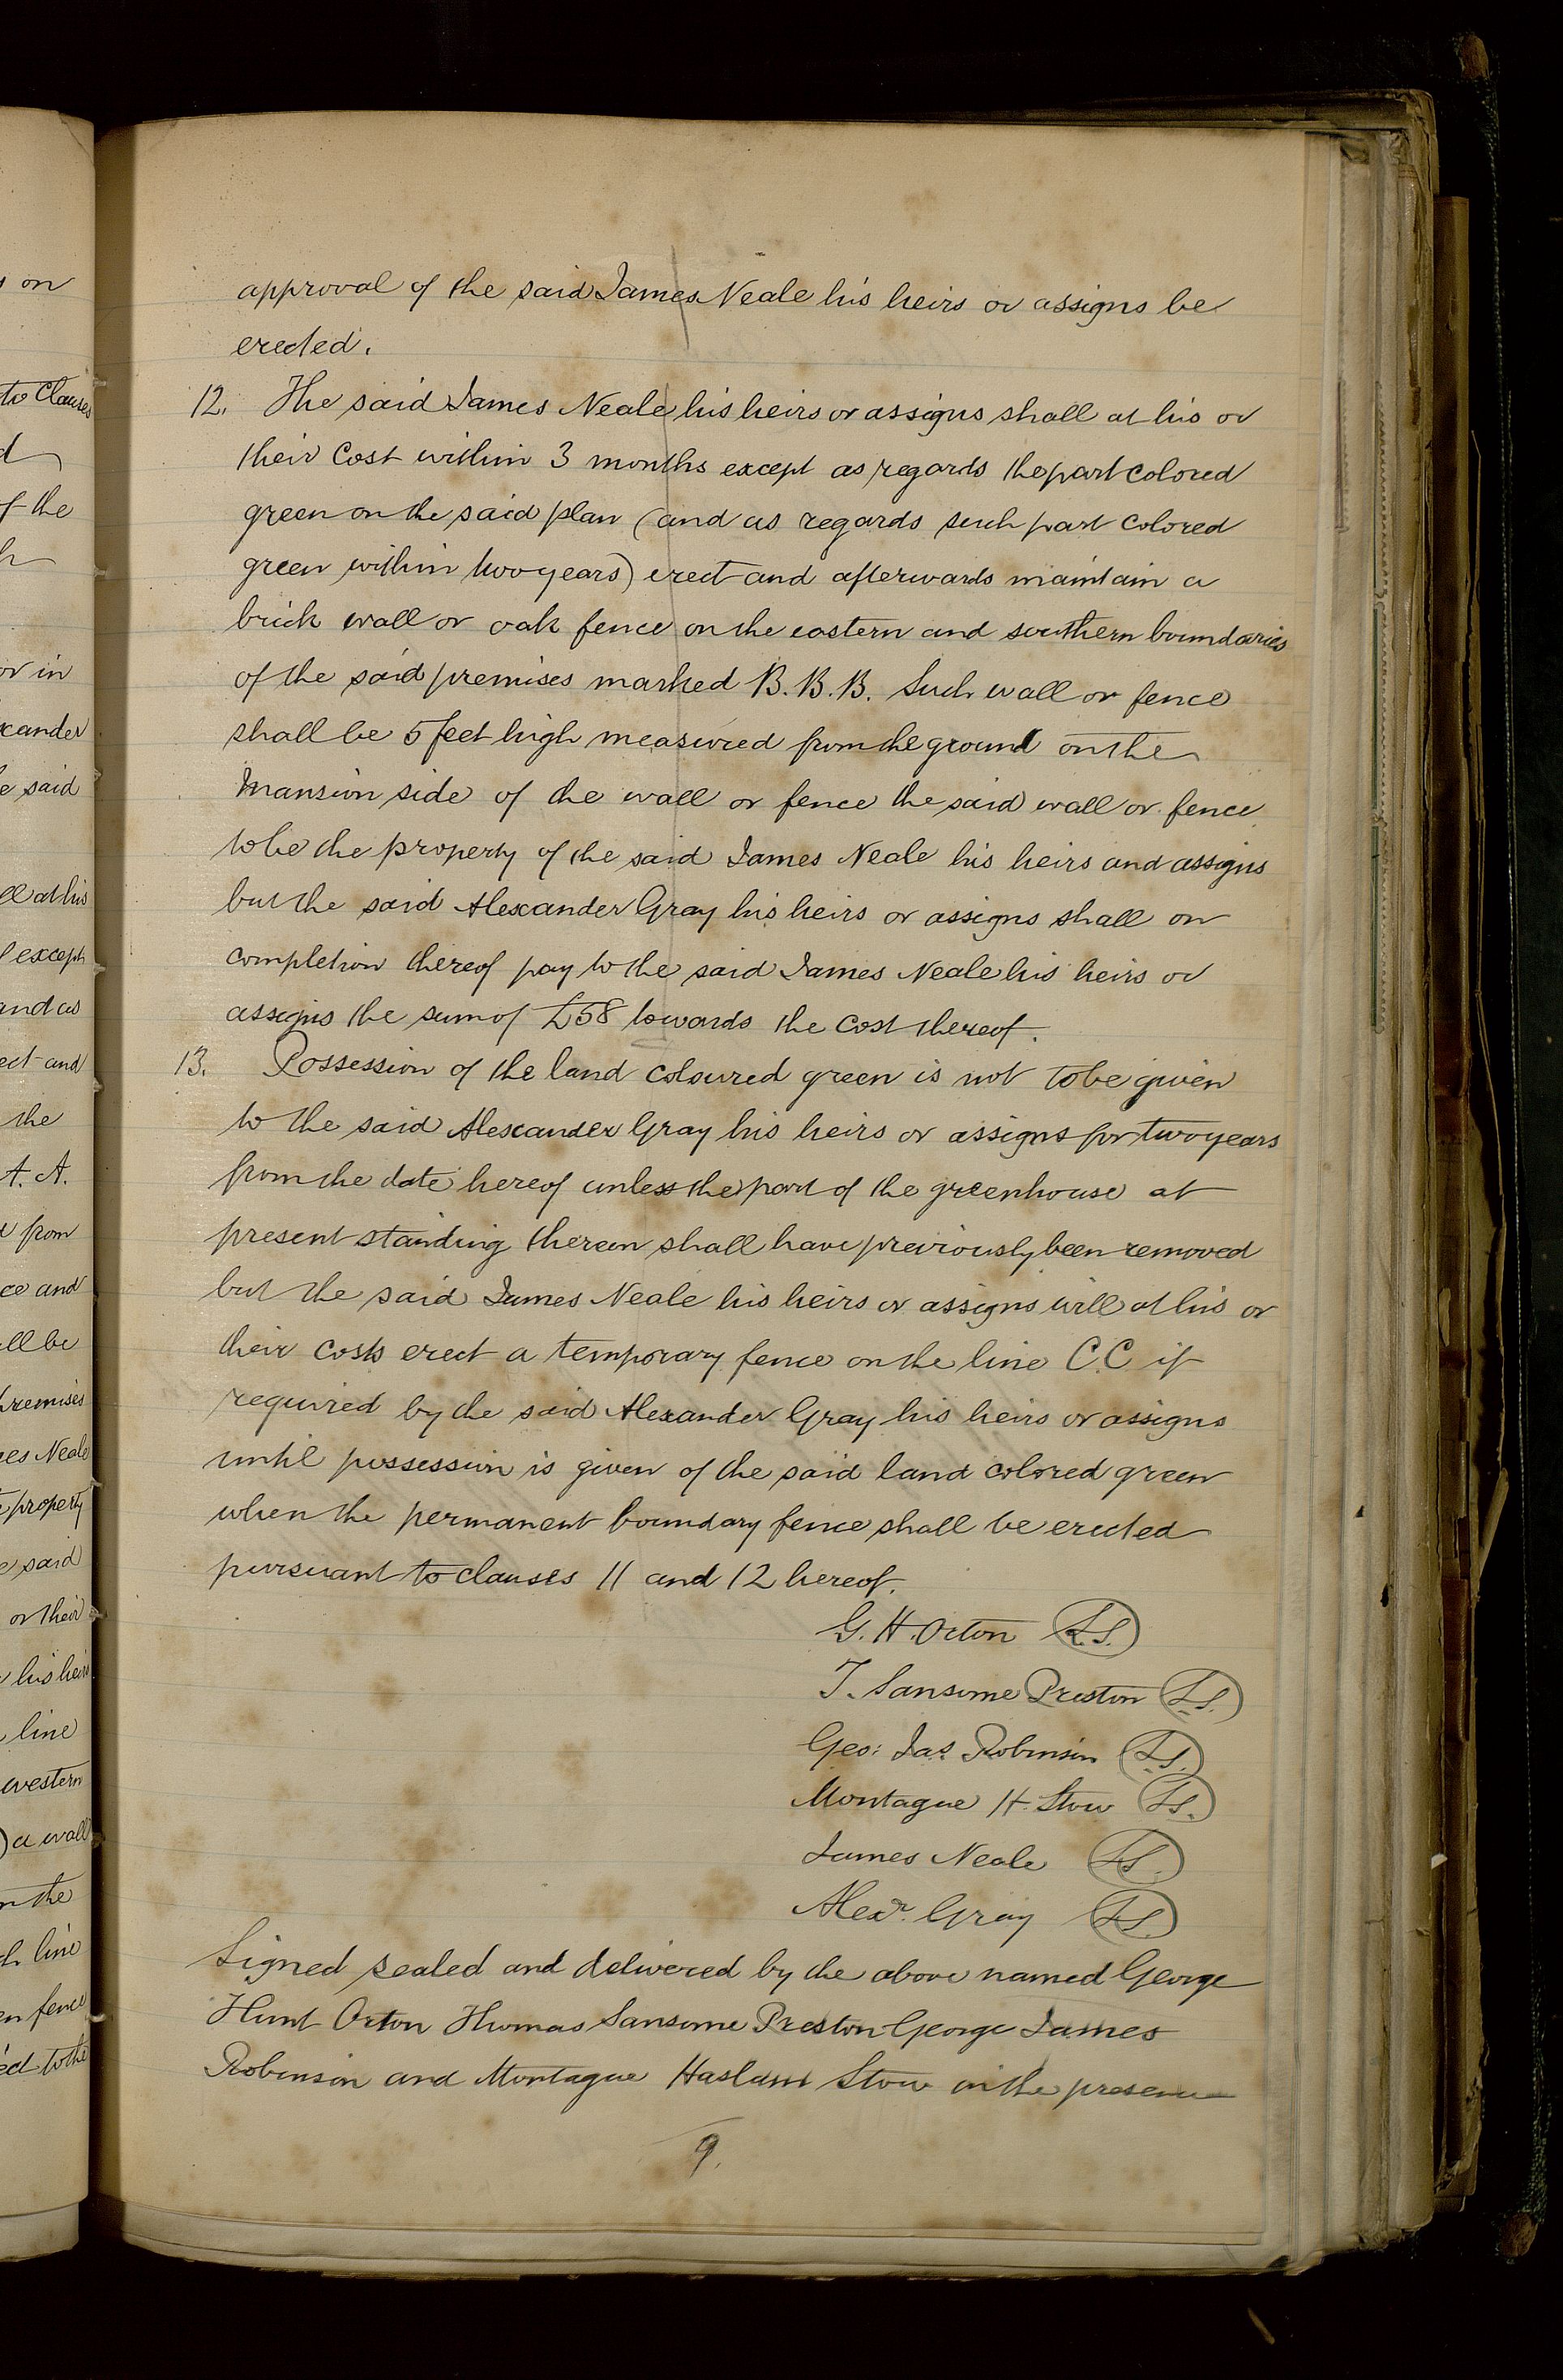 approval of the said James Neale his heirs or assigns be
erected.
12. The said James Neale his heirs or assigns shall at his or
their Cost within 3 months except as regards the part colored
green on the said plan (and as regards such part colored
green within two years) erect and afterwards maintain a
brick wall or oak fence on the eastern and southern boundaries
of the said premises marked B.B.B. Such wall or fence
shall be 5 feet high measured from the ground on the
Mansion side of the wall or fence the said wall or fence
to be the property of the said James Neale his heirs and assigns
but the said Alexander Gray his heirs or assigns shall on
completion thereof pay to the said James Neale his heirs or
assigns the sum of £58 towards the Cost thereof.
13. Possession of the land coloured green is not to be given
to the said Alexander Gray his heirs or assigns for two years
from the date hereof unless the part of the greenhouse at
present standing thereon shall have previously been removed
but the said James Neale his heirs or assigns will at his or
their costs erect a temporary fence on the line C.C if
required by the said Alexander Gray his heirs or assigns
until possession is given of the said land colored green
when the permanent boundary fence shall be erected
pursuant to clauses 11 and 12 hereof.
G. H. Orton L.S.
T. Sansome Preston L.S.
Geo: Jas. Robinson L.S.
Montague H. Stow L.S.
James Neale L.S.
Alexr. Gray L.S.
Signed sealed and delivered by the above named George
Hunt Orton Thomas Sansome Preston George James
Robinson and Montague Haslam Stow in the presence
9.
s on
to Clauses
d
of the
h
or in
xander
he said
ll at his
except
and as
ect and
the
A. A.
from
ce and
all be
premises
mes Neale
property
e said
or their
his heirs
line
western
) a wall
on the
ch line
en fence
ed to the